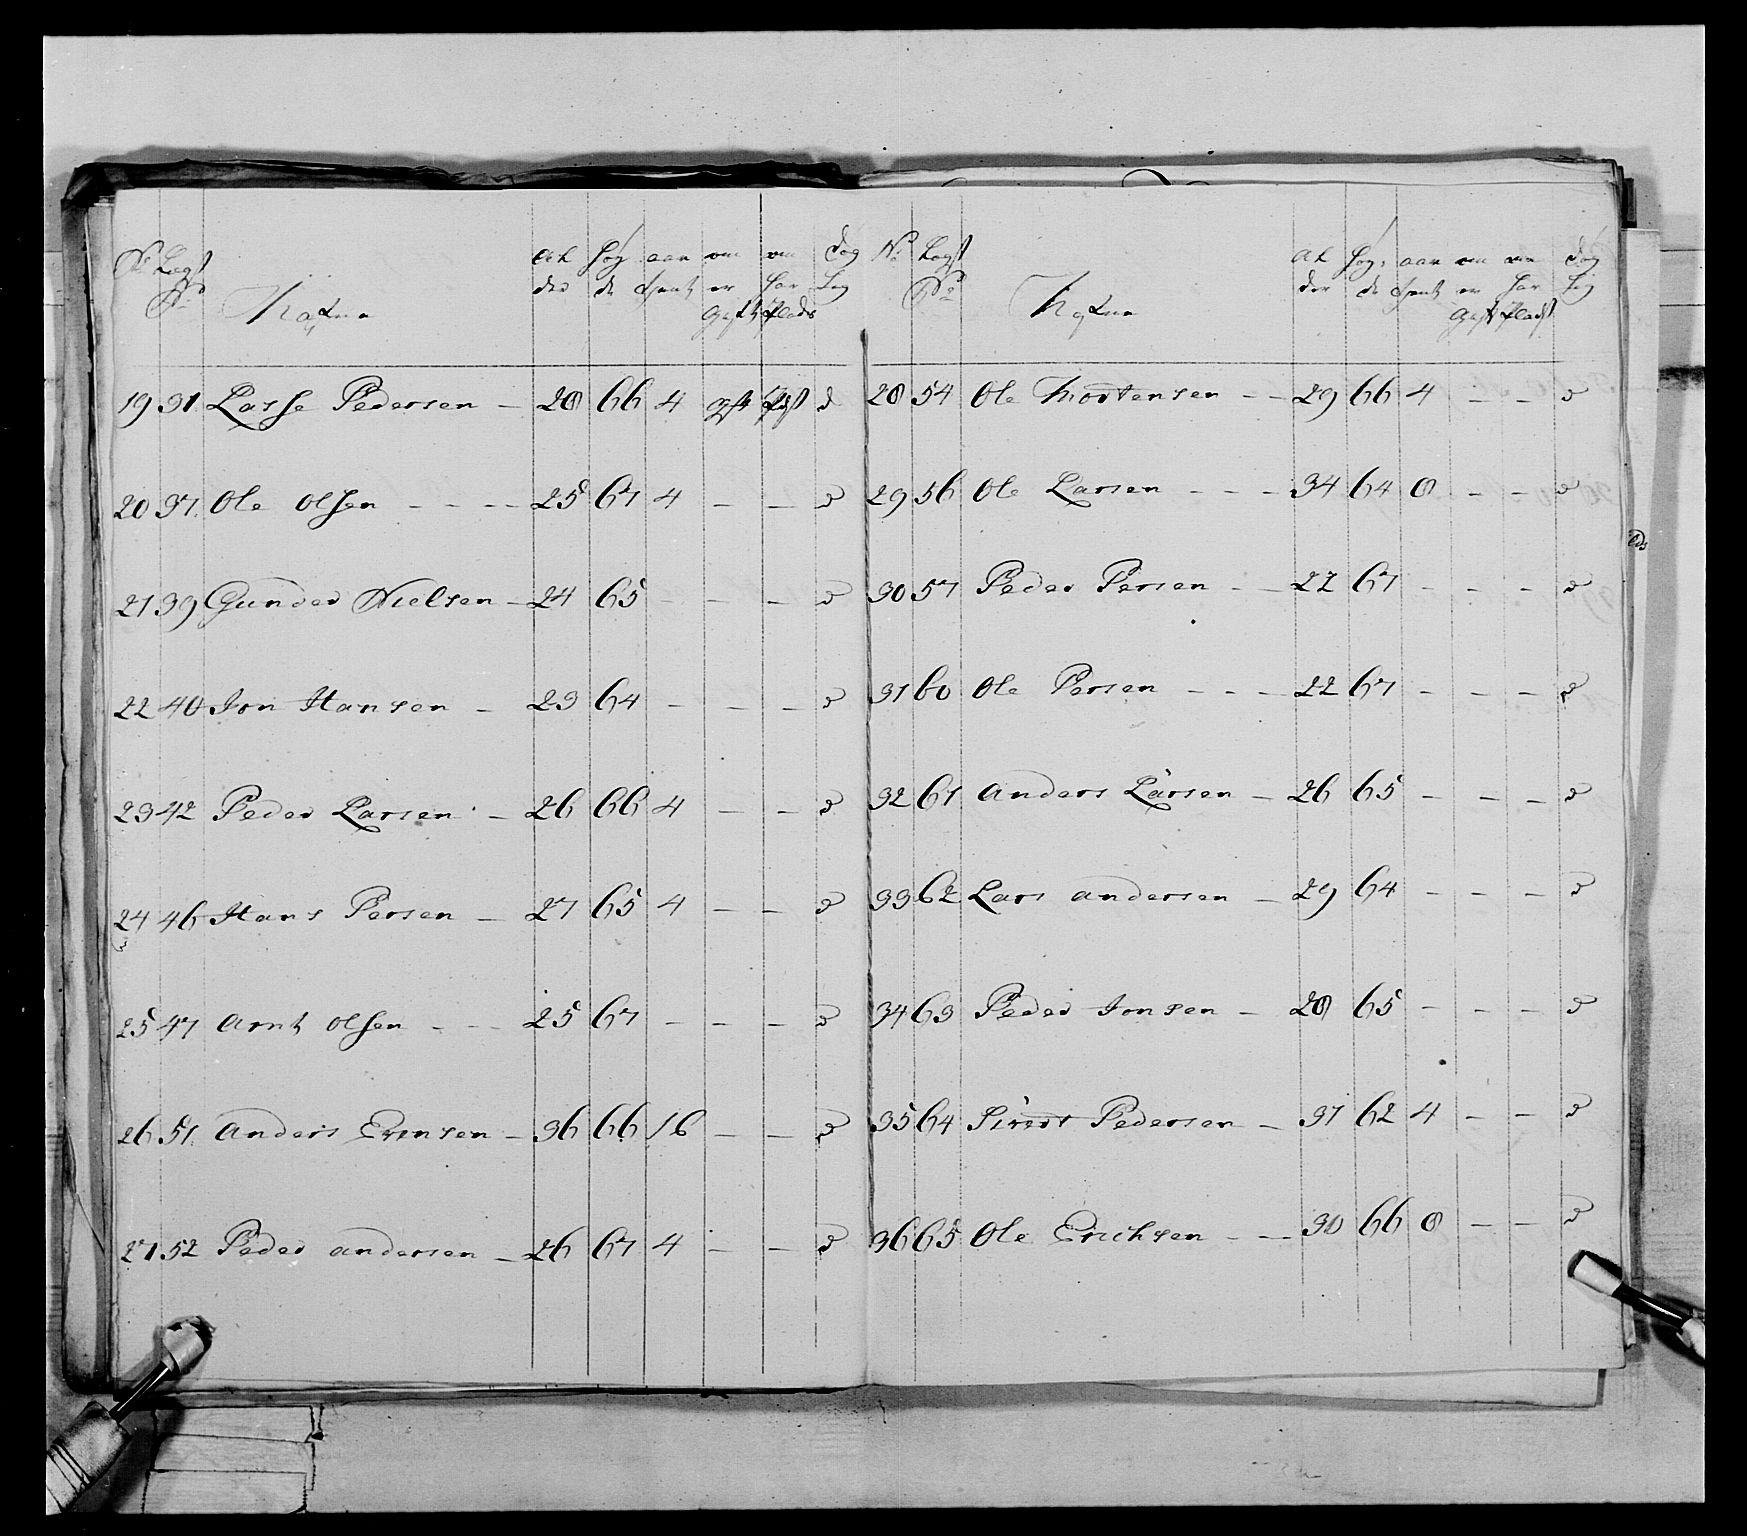 No Lægst No Nafne al der høy de aar thent om er gift om har Plads dog lig
19 31 Lasse Pedersen - 28 66 4 gift d
20 37 Ole Olsen - - - - 25 67 4 - - d
21 39 Gunder Nielsen - 24 65 - - - d
22 40 Jon Hansen - 23 64 - - - d
23 42 Peder Larsen - 26 66 4 - - d
24 46 Hans Persen - 27 65 4 - - d
25 47 Arnt Olsen - - 25 67 - - - d
26 51 Anders Erensen - 36 66 16 - - d
27 52 Peder Andersen - 26 67 4 - - d
No Lægst No Nafne al der høy de aar thent om er gift om har Plads dog lig
28 54 Ole Mortensen - - 29 66 4 - - d
29 56 Ole Larsen - - - 34 64 8 - - d
30 57 Peder Persen - - 22 67 - - - d
31 60 Ole Persen - - - 22 67 - - - d
32 61 Anders Larsen - 26 65 - - - d
33 62 Lars Andersen - 29 64 - - - d
34 63 Peder Jonsen - 28 65 - - - d
35 64 Pedersen - 31 62 4 - - d
36 65 Ole Erichsen - - 30 66 8 - - d